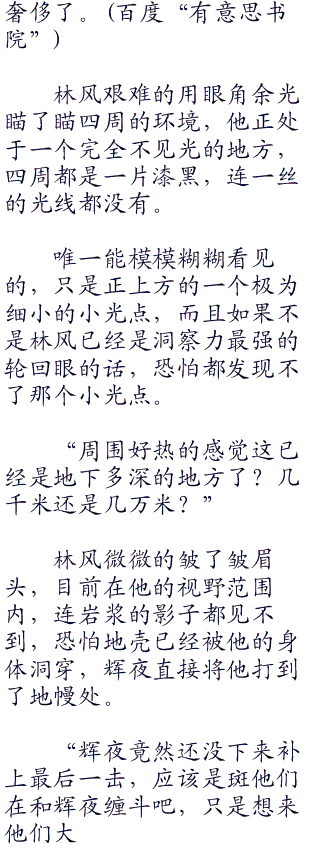 奢侈了。(百度“有意思书
院”)
林风艰难的用眼角余光
瞄了瞄四周的环境，他正处
于一个完全不见光的地方，
四周都是一片漆黑，连一丝
的光线都没有。
唯一能模模糊糊看见
的，只是正上方的一个极为
细小的小光点，而且如果不
是林风已经是洞察力最强的
轮回眼的话，恐怕都发现不
了那个小光点。
“周围好热的感觉这已
经是地下多深的地方了？几
千米还是几万米？”
林风微微的皱了皱眉
头，目前在他的视野范围
内，连岩浆的影子都见不
到，恐怕地壳已经被他的身
体洞穿，辉夜直接将他打到
了地幔处。
“辉夜竟然还没下来补
上最后一击，应该是斑他们
在和辉夜缠斗吧，只是想来
他们大